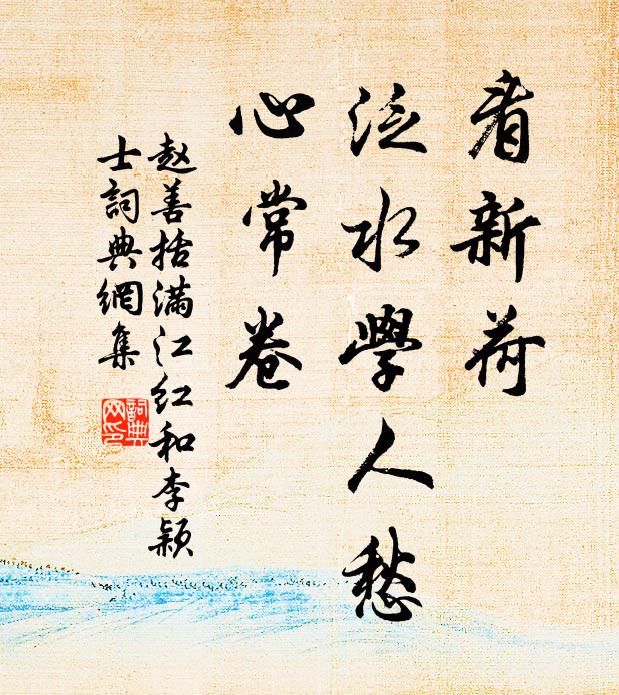 看新荷
泛水學人愁
心常卷
赵善括满江红和李颖
士詞典網集
詞典
网印